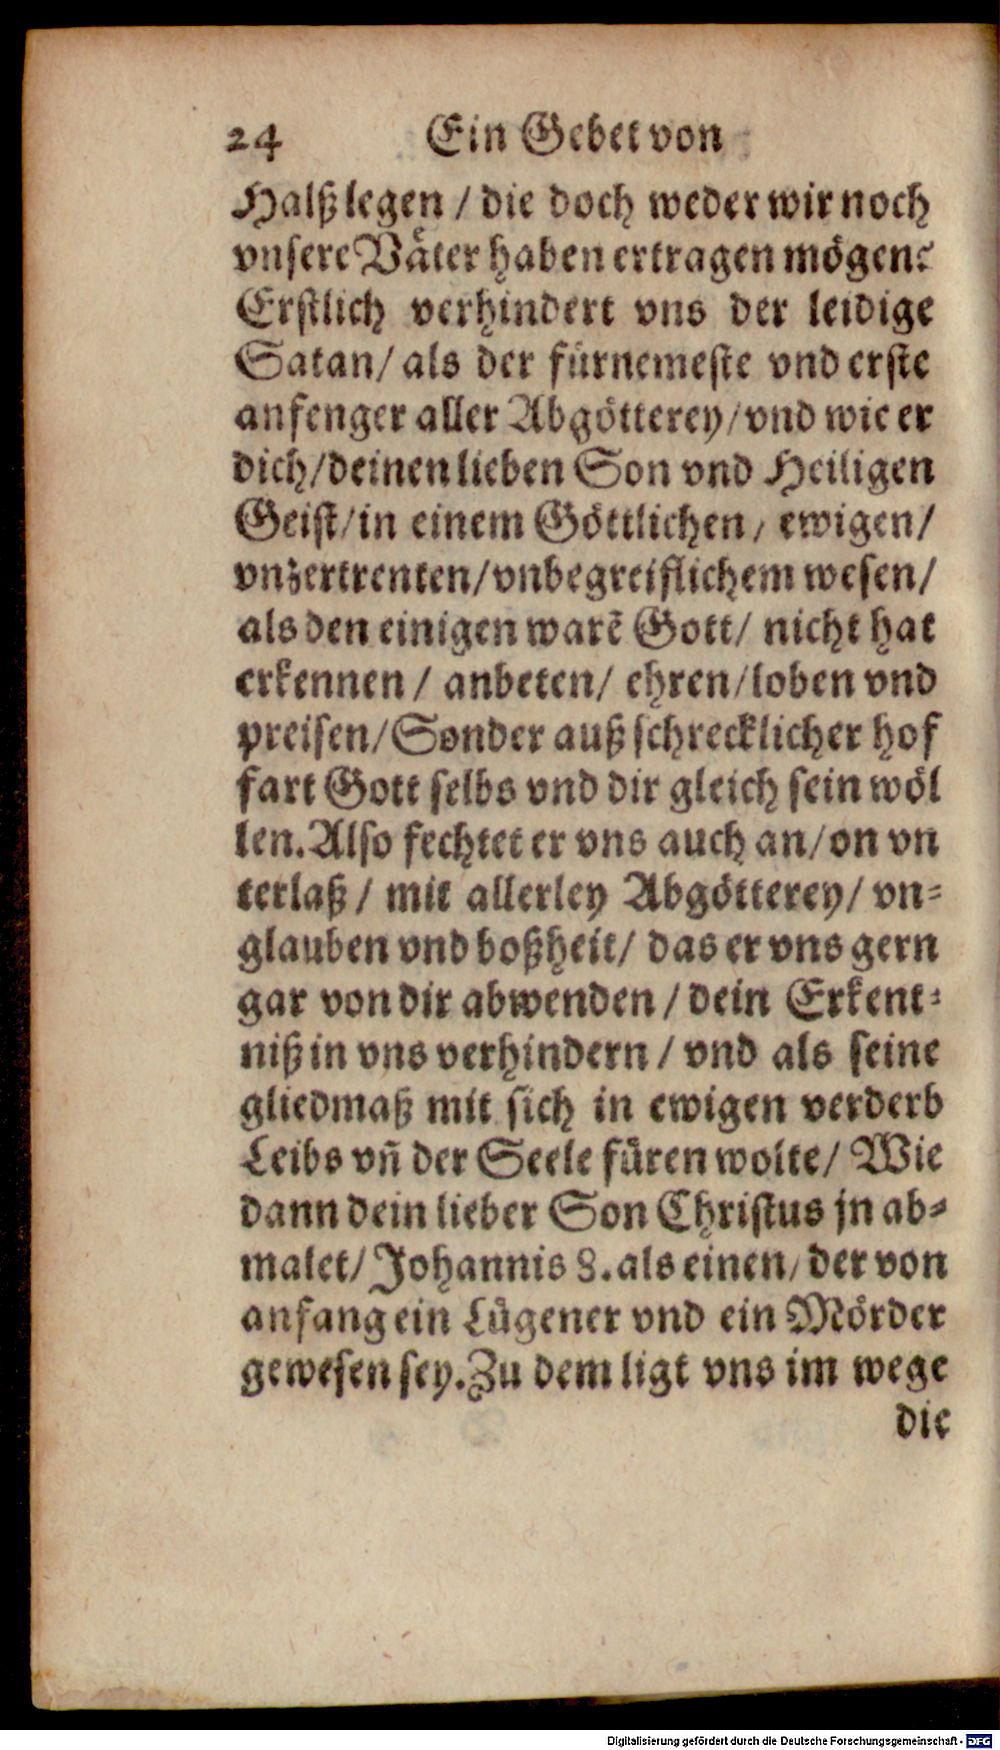 24 Ein Gebet von
Halß legen / die doch weder wir noch
vnsere Vaͤter haben ertragen moͤgen?
Erstlich verhindert vns der leidige
Satan / als der fürnemeste vnd erste
anfenger aller Abgoͤtterey / vnd wie er
dich / deinen lieben Son vnd Heiligen
Geist / in einem Goͤttlichen / ewigen /
vnzertrenten / vnbegreiflichem wesen /
als den einigen warẽ Gott / nicht hat
erkennen / anbeten / ehren / loben vnd
preisen / Sonder auß schrecklicher hof
fart Gott selbs vnd dir gleich sein woͤl
len. Also fechtet er vns auch an / on vn
terlaß / mit allerley Abgoͤtterey / vn⸗
glauben vnd boßheit / das er vns gern
gar von dir abwenden / dein Erkent⸗
niß in vns verhindern / vnd als seine
gliedmaß mit sich in ewigen verderb
Leibs vñ der Seele fuͤren wolte / Wie
dann dein lieber Son Christus jn ab⸗
malet / Johannis 8. als einen / der von
anfang ein Luͤgener vnd ein Moͤrder
gewesen sey. Zu dem ligt vns im wege
die
Digitalisierung gefördert durch die Deutsche Forschungsgemeinschaft - DFG